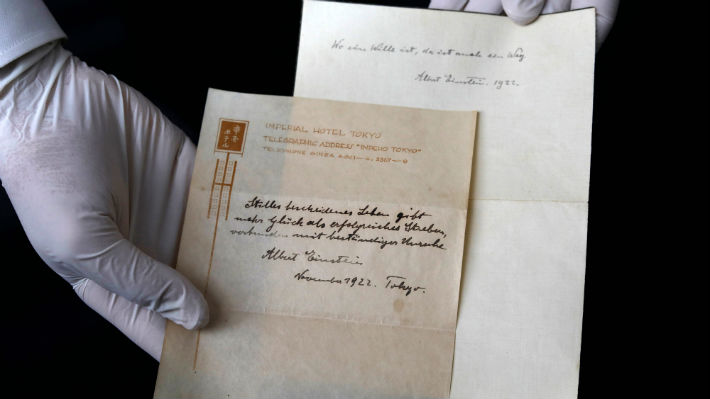 Wo ein Wille ist, da ist auch ein Weg.
Albert Einstein. 1922.
帝国
ホテル
IMPERIAL HOTEL TOKYO
TELEGRAPHIC ADDRESS "IMPEHO TOKYO"
TELEPHONE GINZA
Stilles bescheidenes Leben gibt
mehr Glück als erfolgreiches Streben,
verbunden mit beständiger Unruhe.
Albert Einstein
November 1922. Tokyo.